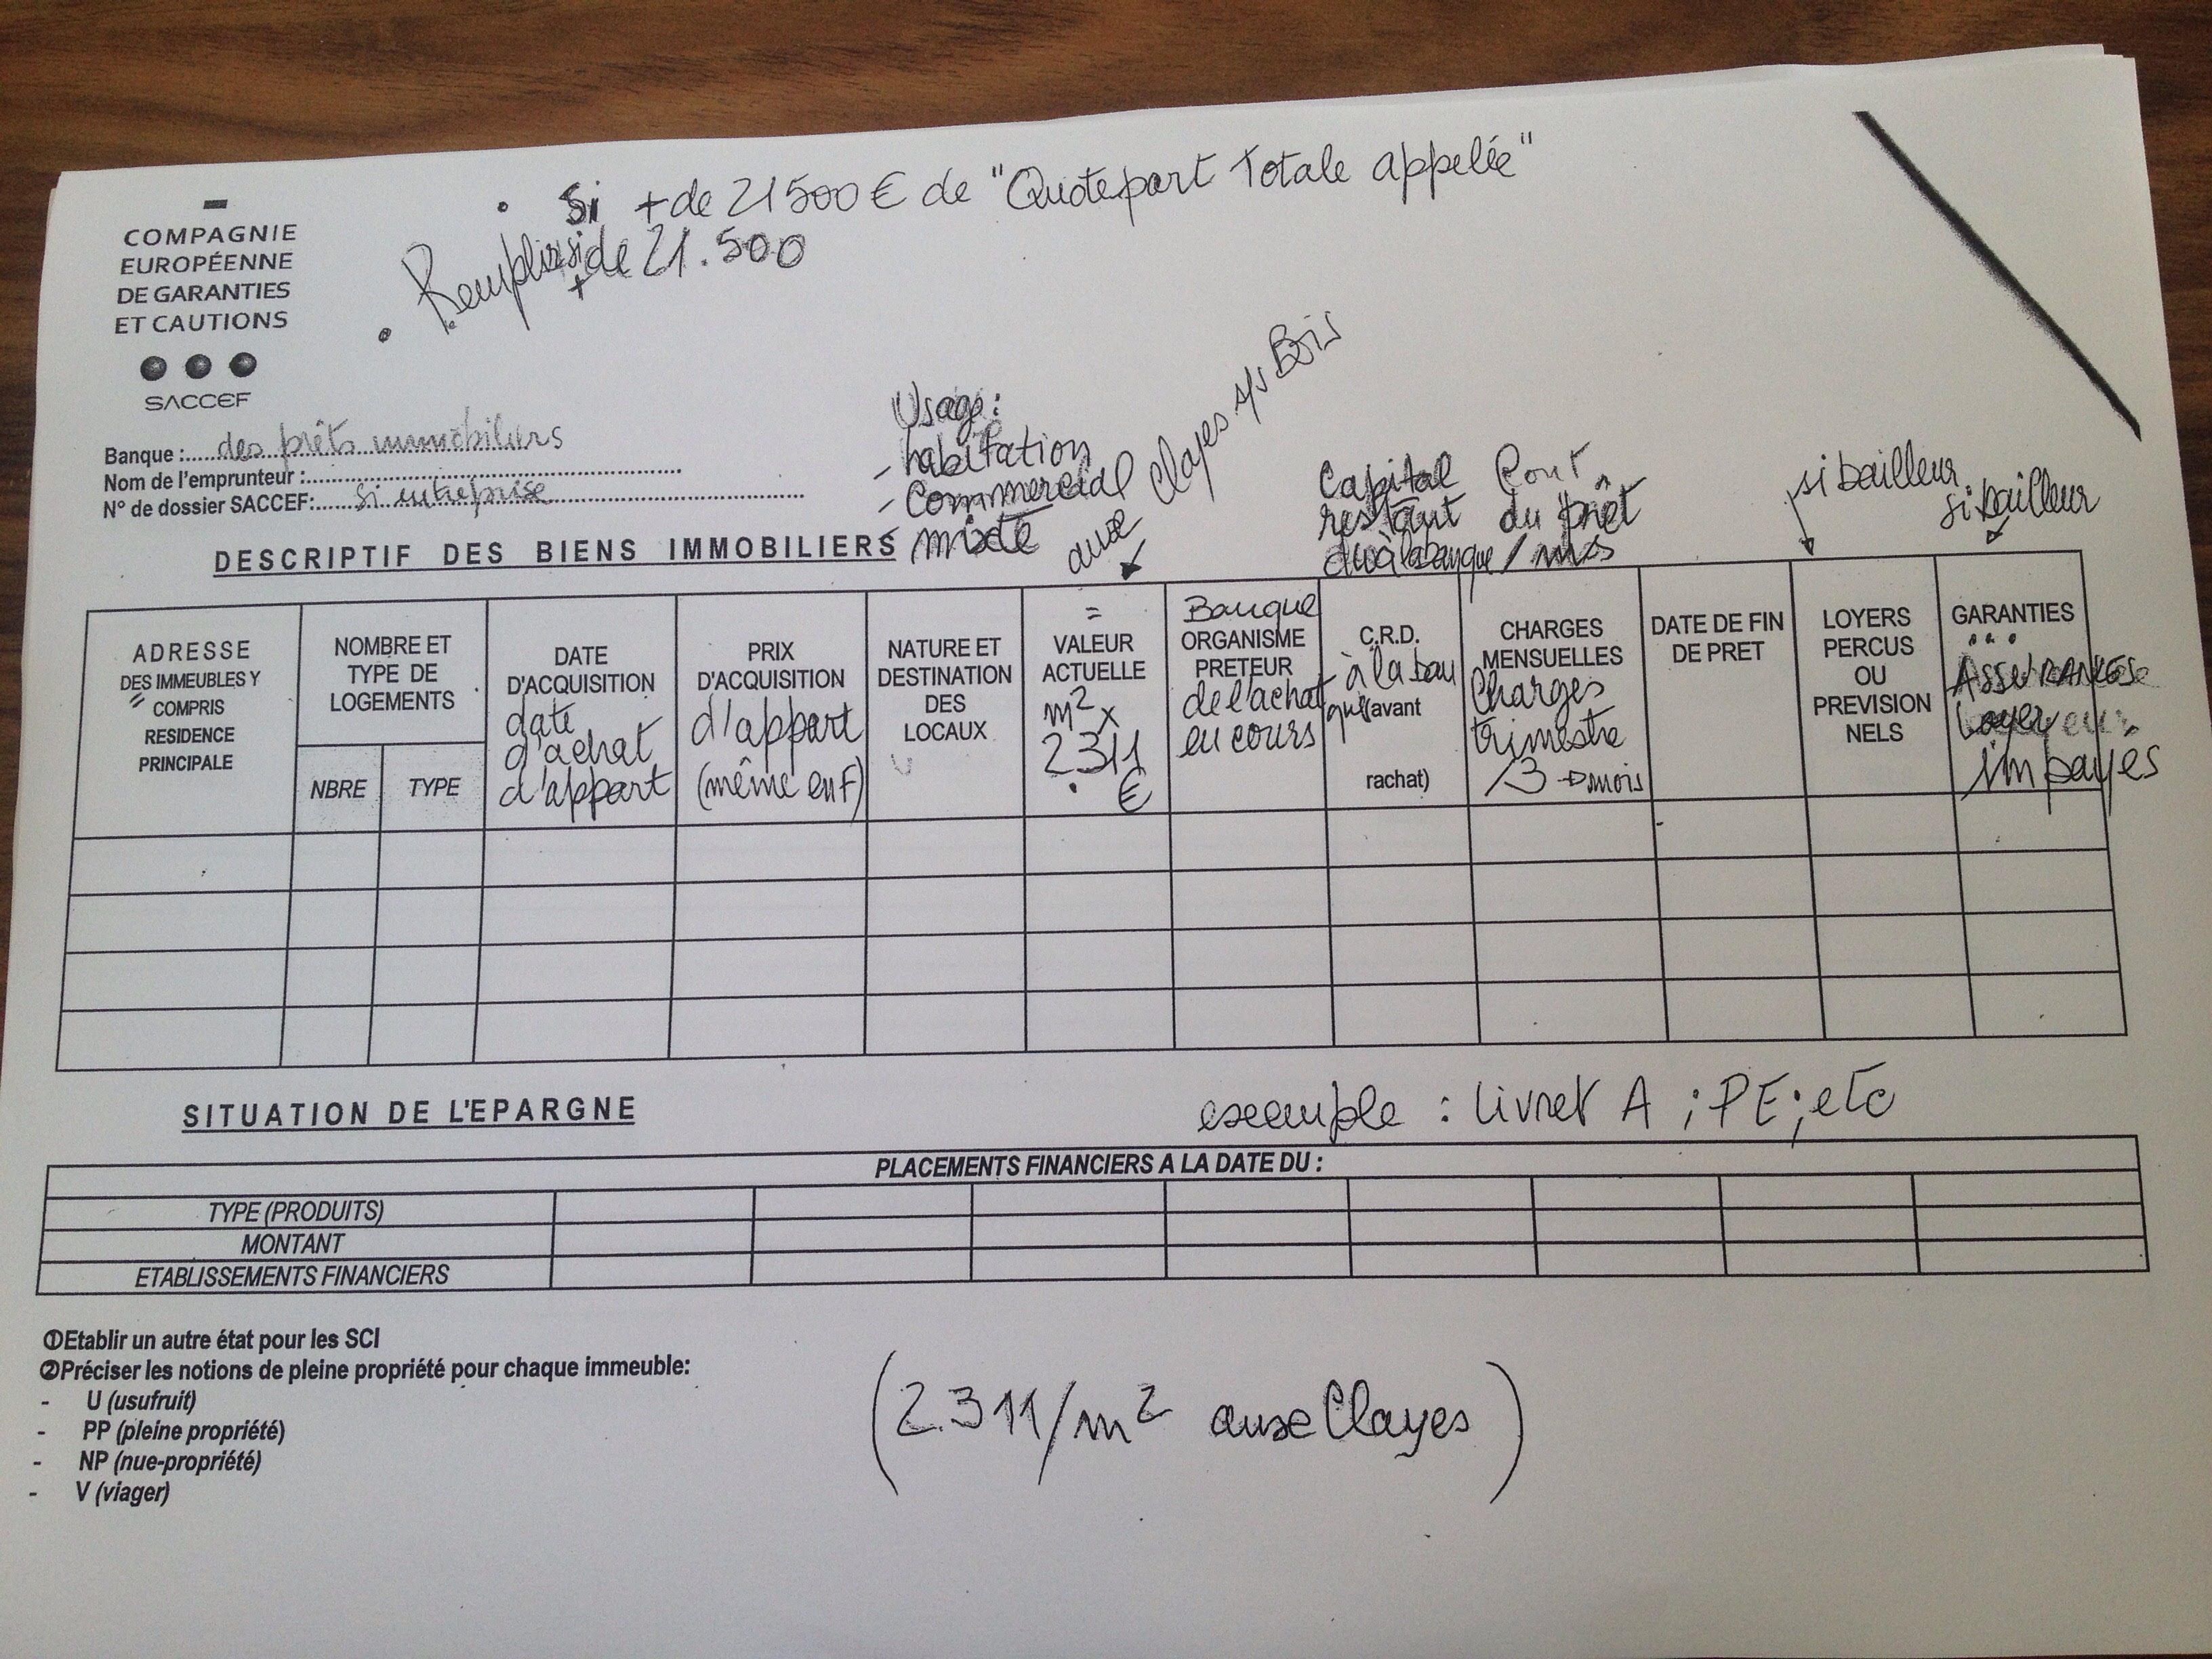 • Si + de 21500 € de "Quotepart Totale appelée"
• Remplir si + de 21.500
COMPAGNIE
EUROPÉENNE
DE GARANTIES
ET CAUTIONS
SACCEF
Banque :.....des prêts immobiliers
Nom de l'emprunteur :
N° de dossier SACCEF:.....si entreprise
Usage :
- habitation
- Commercial
- mixte
aux Clayes s/s Bois
Capital
restant
dû à la banque
Cout
du prêt
/ mois
si bailleur
si bailleur
DESCRIPTIF DES BIENS IMMOBILIERS
ADRESSE
DES IMMEUBLES Y
COMPRIS
RESIDENCE
PRINCIPALE
NOMBRE ET
TYPE DE
LOGEMENTS
NBRE
TYPE
DATE
D'ACQUISITION
date
d'achat
d'appart
PRIX
D'ACQUISITION
d'appart
(même en F)
NATURE ET
DESTINATION
DES
LOCAUX
=
VALEUR
ACTUELLE
m² x
2311
€
Banque
ORGANISME
PRETEUR
de l'achat
en cours
C.R.D.
à la ban
que (avant
rachat)
CHARGES
MENSUELLES
Charges
trimestre
/3 → mois
DATE DE FIN
DE PRET
LOYERS
PERCUS
OU
PREVISION
NELS
GARANTIES
ASSURANCES
Loyer
impayés
SITUATION DE L'EPARGNE
exemple : Livret A ; PE ; etc
PLACEMENTS FINANCIERS A LA DATE DU :
TYPE (PRODUITS)
MONTANT
ETABLISSEMENTS FINANCIERS
①Etablir un autre état pour les SCI
②Préciser les notions de pleine propriété pour chaque immeuble:
- U (usufruit)
- PP (pleine propriété)
- NP (nue-propriété)
- V (viager)
(2.311/m² aux Clayes)